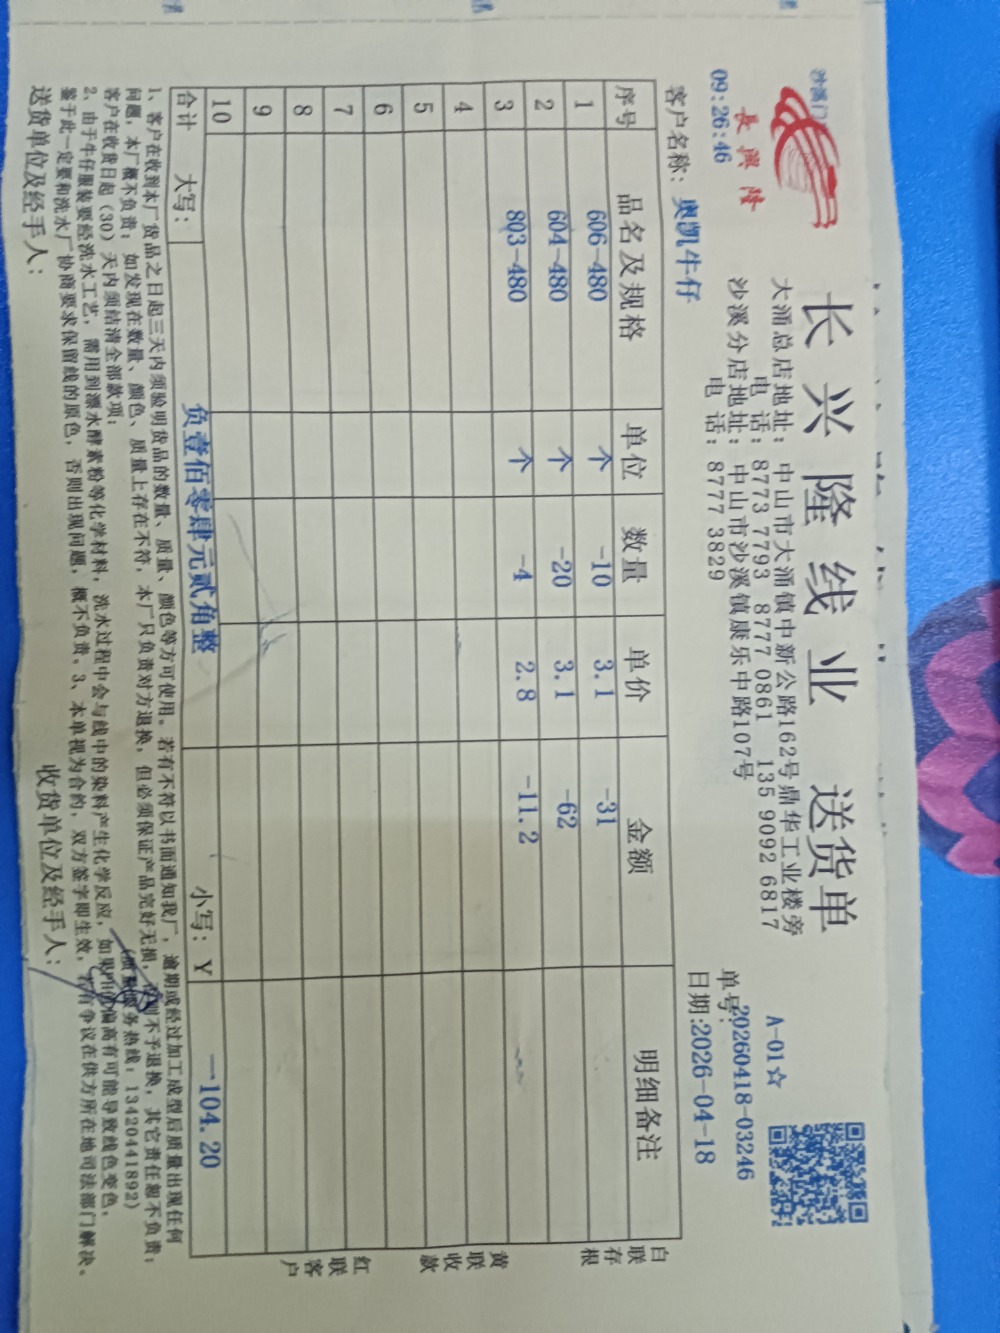 沙溪门
09:26:46
長興隆
长兴隆线业 送货单
大涌总店地址：中山市大涌镇中新公路162号鼎华工业楼旁
电 话：8773 7793 8777 0861 135 9092 6817
沙溪分店地址：中山市沙溪镇康乐中路107号
电 话：8777 3829
A-01☆
单号：20260418-03246
日期:2026-04-18
客户名称：奥凯牛仔
序号 品名及规格 单位 数量 单价 金额 明细备注
1 606-480 个 -10 3.1 -31
2 604-480 个 -20 3.1 -62
3 803-480 个 -4 2.8 -11.2
4
5
6
7
8
9
10
合计 大写：负壹佰零肆元贰角整 小写：Y 一104.20
白联存根
黄联收款
红联客户
1、客户在收到本厂货品之日起三天内须验明货品的数量、质量、颜色等方可使用。若有不符以书面通知我厂，逾期或经过加工成型后质量出现任何
问题，本厂概不负责；如发现在数量、颜色、质量上存在不符，本厂只负责对方退换，但必须保证产品完好无损，否则不予退换，其它责任恕不负责；
客户在收货日起（30）天内须结清全部款项； (质量服务热线：13420441892)
2、由于牛仔服装要经洗水工艺，需用到漂水酵素粉等化学材料，洗水过程中会与线中的染料产生化学反应，如果偏高有可能导致线色变色，
鉴于此一定要和洗水厂协商要求保留线的原色，否则出现问题，概不负责。3、本单视为合约，双方签字即生效，若有争议在供方所在地司法部门解决。
送货单位及经手人： 收货单位及经手人：